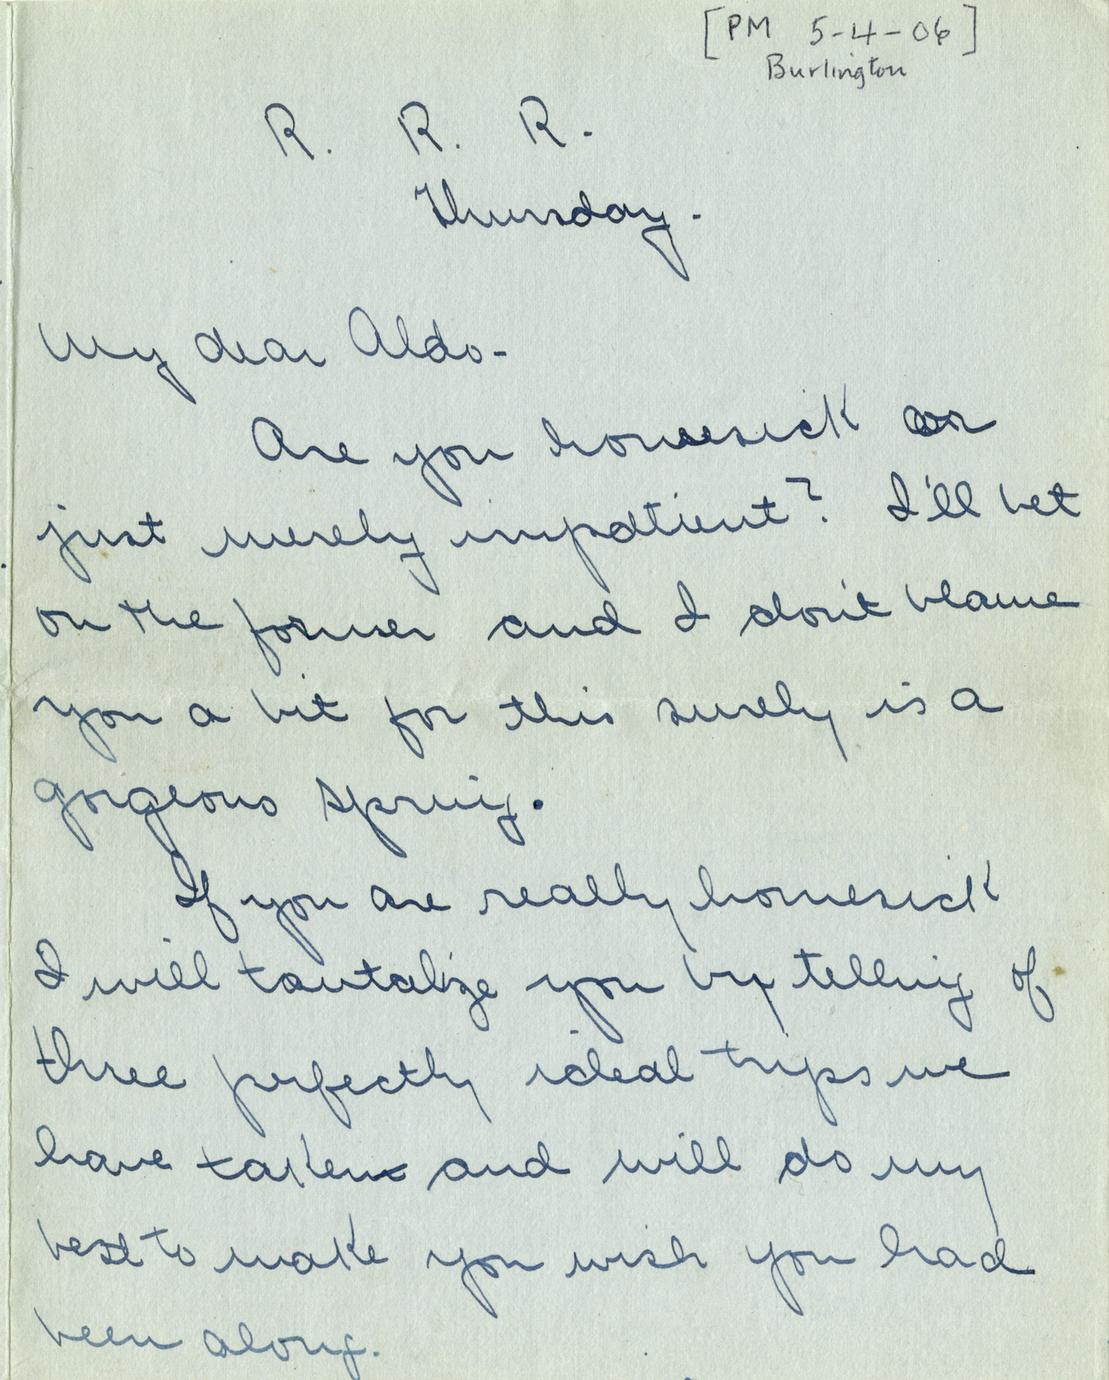 [PM 5-4-06]
Burlington
R. R. R.
Thursday.
My dear Aldo-
Are you homesick or
just merely impatient? I'll bet
on the former and I don't blame
you a bit for this surely is a
gorgeous spring.
If you are really homesick
I will tantalize you by telling of
three perfectly ideal trips we
have taken and will do my
best to make you wish you had
been along.